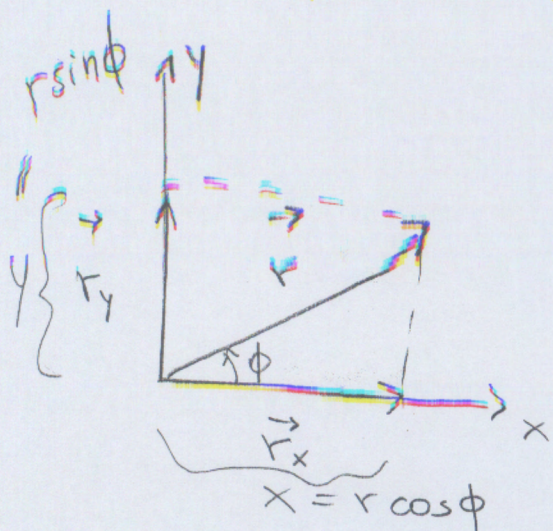 r sin ϕ
y
=
y
r⃗_y
r⃗
ϕ
x
r⃗_x
x = r cos ϕ